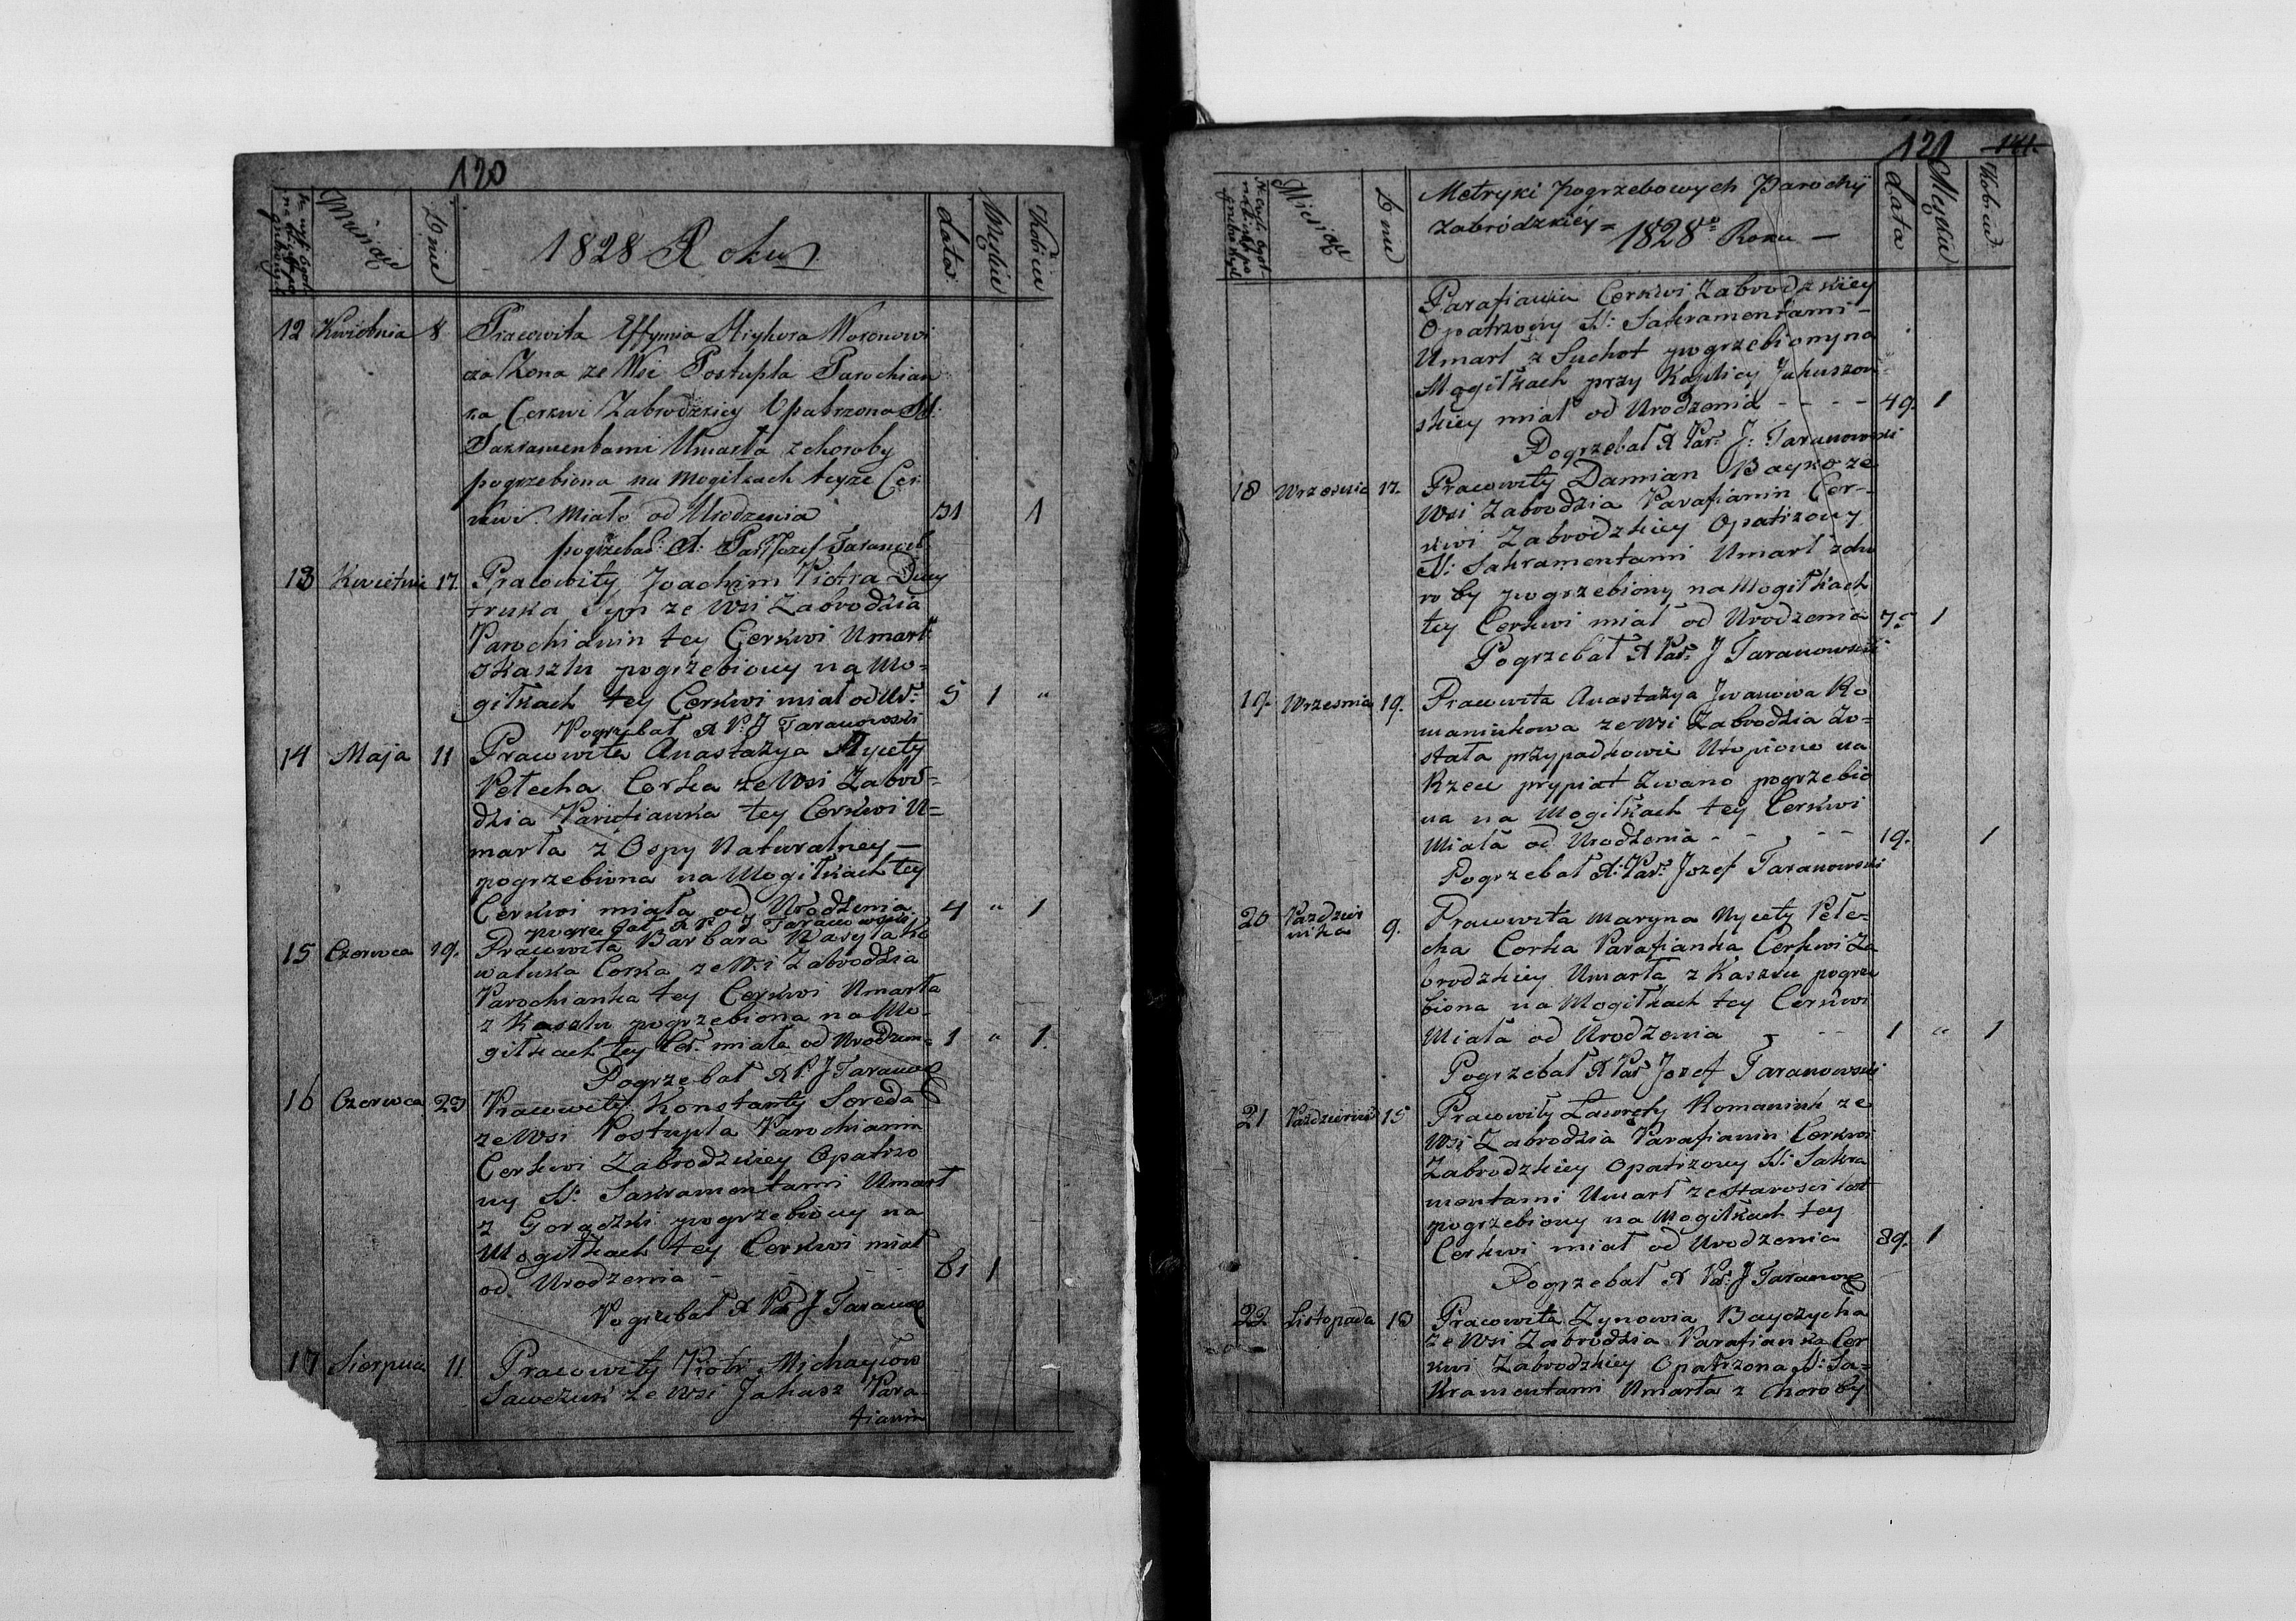 120
Miesiąc
Dnie
1828 Roku
data
Męscy
Kobiw
12 Kwietnia 8 Pracowita Effymia Mighora Woronowi
cza Żona ze Wsi Postupla Parochian
ka Cerkwi Zabrodzkiey Opatrzona SS:
Sakramentami Umarła z choroby
pogrzebiona na Mogiłkach teyże Cer-
kwi. Miało od Urodzenia 31 1
pogrzebał: A: Par Jozef Taranowsk
13 Kwietnia 17. Pracowity Joachim Piotra Dmy
truka Syn ze Wsi Zabrodzia
Parochianin tey Cerkwi Umarł
z Kaszlu pogrzebiony na Mo-
giłkach tey Cerkwi miał od Ur: 5 1 "
Pogrzebał A P: J Taranowski
14 Maja 11 Pracowita Anastazya Mycety
Petecha Corka ze Wsi Zabro-
dzia Parafianka tey Cerkwi U-
marła z Ospy Naturalney —
pogrzebiona na Mogiłkach tey
Cerkwi miała od Urodzenia 4 " 1
pogrzebał A P J Taranowski
15 Czerwca 19. Pracowita Barbara Wasyla Ko
waluka Corka ze Wsi Zabrodzia
Parochianka tey Cerkwi Umarła
z Kaszlu pogrzebiona na Mo-
giłkach tey Cer. miała od Urodzen- 1 " 1.
Pogrzebał A P. J Taranow
16 Czerwca 23 Pracowity Konstanty Sereda
ze Wsi Postupla Parochianin
Cerkwi Zabrodzkiey Opatrzo
ny SS: Sakramentami Umarł
z Gorączki pogrzebiony na
Mogiłkach tey Cerkwi miał
od Urodzenia - - - 61 1
Pogrzebał A Par J Taranow
17 Sierpnia 11. Pracowity Piotr Michayłow
Sawczuk ze Wsi Jakusz Para-
fianin
121 141.
Miesiąc
Dnie
Metryki Pogrzebowych Parochÿ
Zabródzkiéy = 1828° Roku —
data
Męscy
Kobiw
Parafianin Cerkwi Zabrodzkiey
Opatrzony SS: Sakramentami -
Umarł z Suchot pogrzebiony na
Mogiłkach przy Kaplicy Jakuszow-
skiey miał od Urodzenia - - - - 49. 1
Pogrzebał A Par: J: Taranowski
18 Wrzesnia 17. Pracowity Damian Bayko ze
Wsi Zabrodzia Parafianin Cer-
kwi Zabrodzkiey Opatrzony
SS: Sakramentami Umarł z cho
roby pogrzebiony na Mogiłkach
tey Cerkwi miał od Urodzenia 75 1
Pogrzebał A Par: J Taranowski
19. Wrzesnia 19. Pracowita Anastazya Jwanowa Ro
maniukowa ze Wsi Zabrodzia Zo-
stała przypadkowie Utopiona na
Rzece prypiat Zwano pogrzebio
na na Mogiłkach tey Cerkwi
Miała od Urodzenia - - - - 19. 1
Pogrzebał A: Par: Jozef Taranowski
20 Pazdzier
nika 9. Pracowita Maryna Mycety Pete-
cha Corka Parafianka Cerkwi Za
brodzkiey Umarła z Kaszlu pogrze
biona na Mogiłkach tey Cerkwi
Miała od Urodzenia - - - 1 " 1
Pogrzebał A Par Jozef Taranowski
21 Pazdziernik 15 Pracowity Ławręty Romaniuk ze
Wsi Zabrodzia Parafianin Cerkwi
Zabrodzkiey Opatrzony SS: Sakra
mentami Umarł ze Starosci lat
pogrzebiony na Mogiłkach tey
Cerkwi miał od Urodzenia 89. 1
Pogrzebał A Par: J Taranow
22. Listopada 18 Pracowita Zynowia Bayczycha
ze Wsi Zabrodzia Parafianka Cer
kwi Zabrodzkiey Opatrzona SS: Sa-
kramentami Umarła z choroby